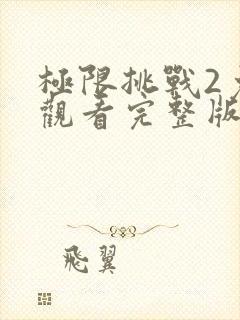 極限挑戰2
觀看完整版
飛翼